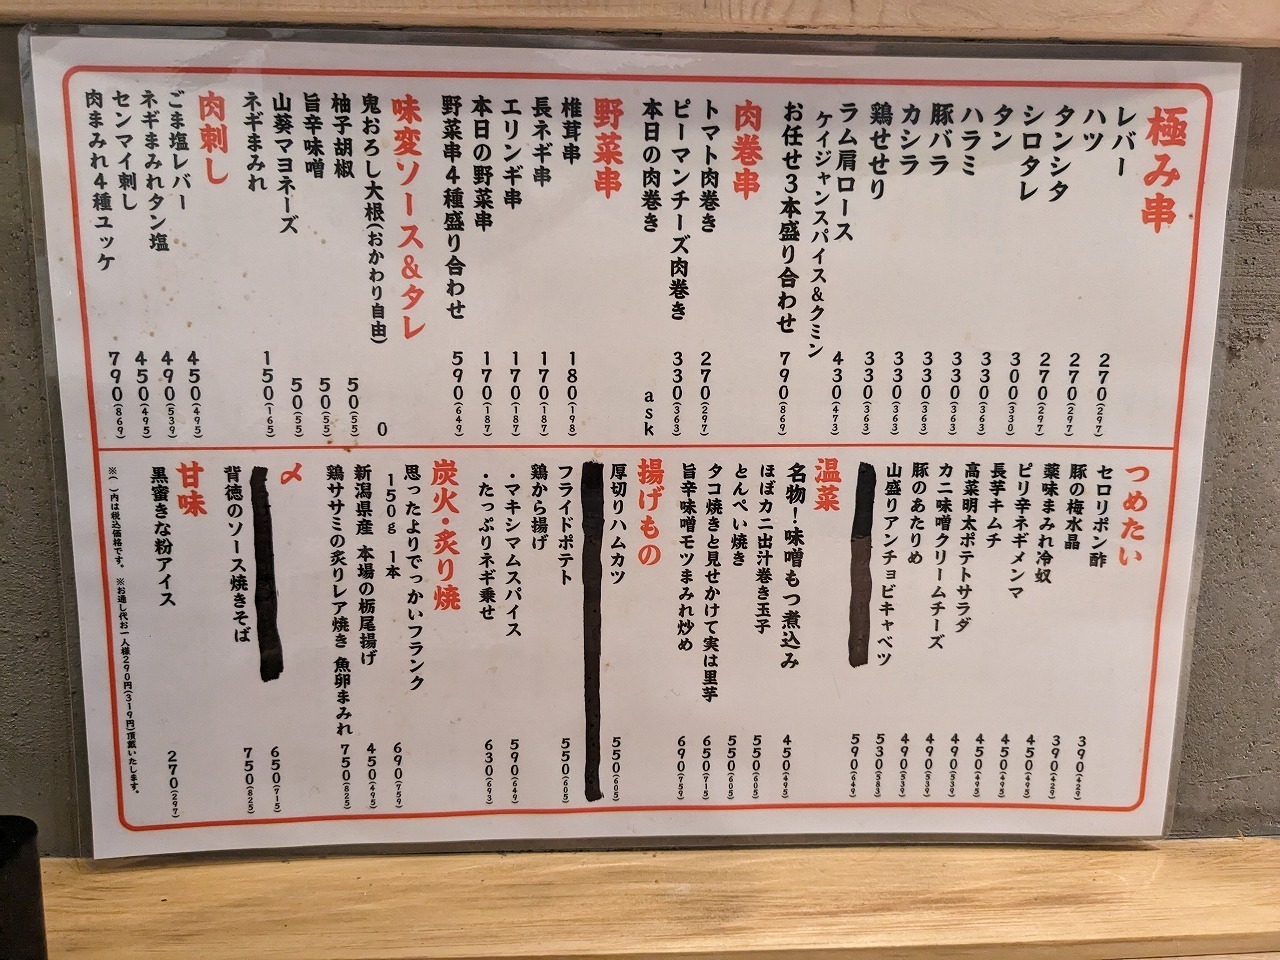 極み串
レバー 270(297)
ハツ 270(297)
タンシタ 270(297)
シロタレ 300(330)
タン 330(363)
ハラミ 330(363)
豚バラ 330(363)
カシラ 330(363)
鶏せせり 330(363)
ラム肩ロース 430(473)
ケイジャンスパイス&クミン
お任せ3本盛り合わせ 790(869)
肉巻串
トマト肉巻き 270(297)
ピーマンチーズ肉巻き 330(363)
本日の肉巻き ask
野菜串
椎茸串 180(198)
長ネギ串 170(187)
エリンギ串 170(187)
本日の野菜串 170(187)
野菜串4種盛り合わせ 590(649)
味変ソース&タレ
鬼おろし大根(おかわり自由) 0
柚子胡椒 50(55)
旨辛味噌 50(55)
山葵マヨネーズ 50(55)
ネギまみれ 150(165)
肉刺し
ごま塩レバー 450(495)
ネギまみれタン塩 490(539)
センマイ刺し 450(495)
肉まみれ4種ユッケ 790(869)
つめたい
セロリポン酢 390(429)
豚の梅水晶 390(429)
薬味まみれ冷奴 450(495)
ピリ辛ネギメンマ 450(495)
長芋キムチ 450(495)
高菜明太ポテトサラダ 490(539)
カニ味噌クリームチーズ 490(539)
豚のあたりめ 490(539)
山盛りアンチョビキャベツ 530(583)
590(649)
温菜
名物!味噌もつ煮込み 450(495)
ほぼカニ出汁巻き玉子 550(605)
とんぺい焼き 550(605)
タコ焼きと見せかけて実は里芋 650(715)
旨辛味噌モツまみれ炒め 690(759)
揚げもの
厚切りハムカツ 550(605)
フライドポテト 550(605)
鶏から揚げ
・マキシマムスパイス 590(649)
・たっぷりネギ乗せ 630(693)
炭火・炙り焼
思ったよりでっかいフランク
150g 1本 690(759)
新潟県産 本場の栃尾揚げ 450(495)
鶏ササミの炙りレア焼き 魚卵まみれ 750(825)
〆
650(715)
背徳のソース焼きそば 750(825)
甘味
黒蜜きな粉アイス 270(297)
※( )内は税込価格です。 ※お通し代お一人様290円(319円)頂戴いたします。